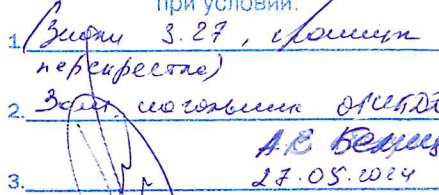 при условии:
1. Знаки 3.27,
перекрестка)
2. Зам. начальника ОГИБДД
А.С.
3. 27.05.2024